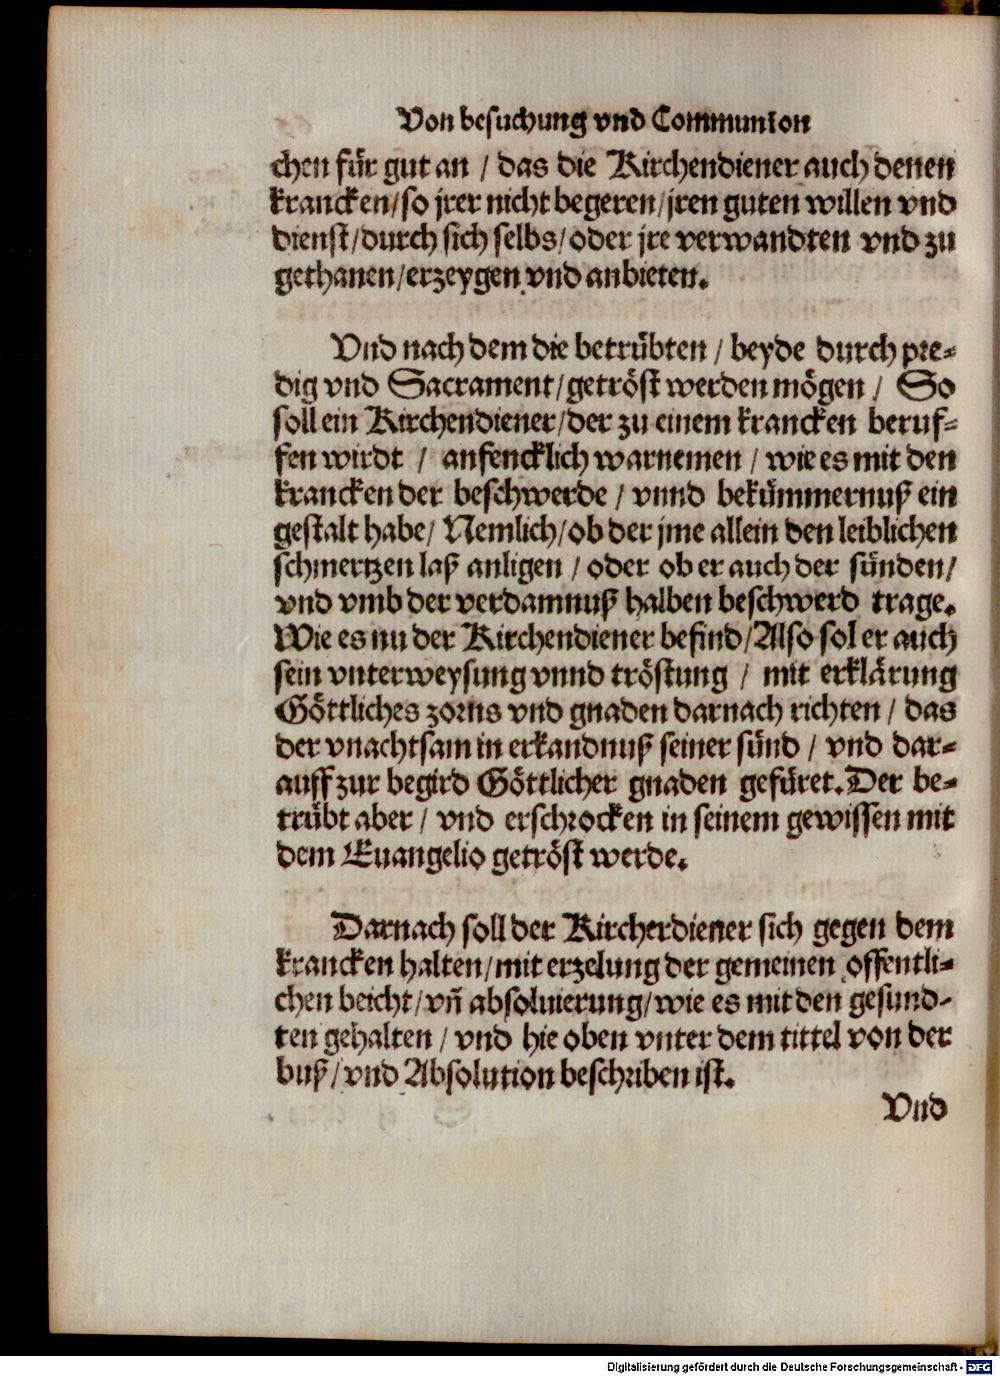 Von besuchung vnd Communion
chen für gut an / das die Kirchendiener auch denen
krancken/so jrer nicht begeren/jren guten willen vnd
dienst/durch sich selbs/oder jre verwandten vnd zu
gethanen/erzeygen vnd anbieten.
Vnd nach dem die betrübten / beyde durch pre⸗
dig vnd Sacrament/getröst werden mögen / So
soll ein Kirchendiener/der zu einem krancken beruf⸗
fen wirdt / anfencklich warnemen / wie es mit den
krancken der beschwerde / vnnd bekümmernuß ein
gestalt habe/ Nemlich/ob der jme allein den leiblichen
schmertzen laß anligen / oder ob er auch der sünden/
vnd vmb der verdamnuß halben beschwerd trage.
Wie es nu der Kirchendiener befind/Also sol er auch
sein vnterweysung vnnd tröstung / mit erklärung
Göttliches zorns vnd gnaden darnach richten / das
der vnachtsam in erkandnuß seiner sünd / vnd dar⸗
auff zur begird Göttlicher gnaden gefüret. Der be⸗
trübt aber / vnd erschrocken in seinem gewissen mit
dem Euangelio getröst werde.
Darnach soll der Kircherdiener sich gegen dem
krancken halten/mit erzelung der gemeinen offentli⸗
chen beicht/vñ absoluierung/wie es mit den gesund⸗
ten gehalten / vnd hie oben vnter dem tittel von der
buß/vnd Absolution beschriben ist.
Vnd
Digitalisierung gefördert durch die Deutsche Forschungsgemeinschaft - DFG